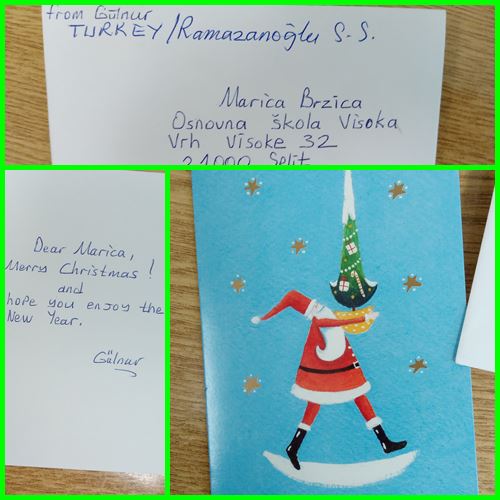 from Gülnur
TURKEY/Ramazanoğlu S.S.
Marica Brzica
Osnovna škola Visoka
Vrh Visoke 32
21000 Split
Dear Marica,
Merry Christmas!
and
hope you enjoy the
New Year.
Gülnur